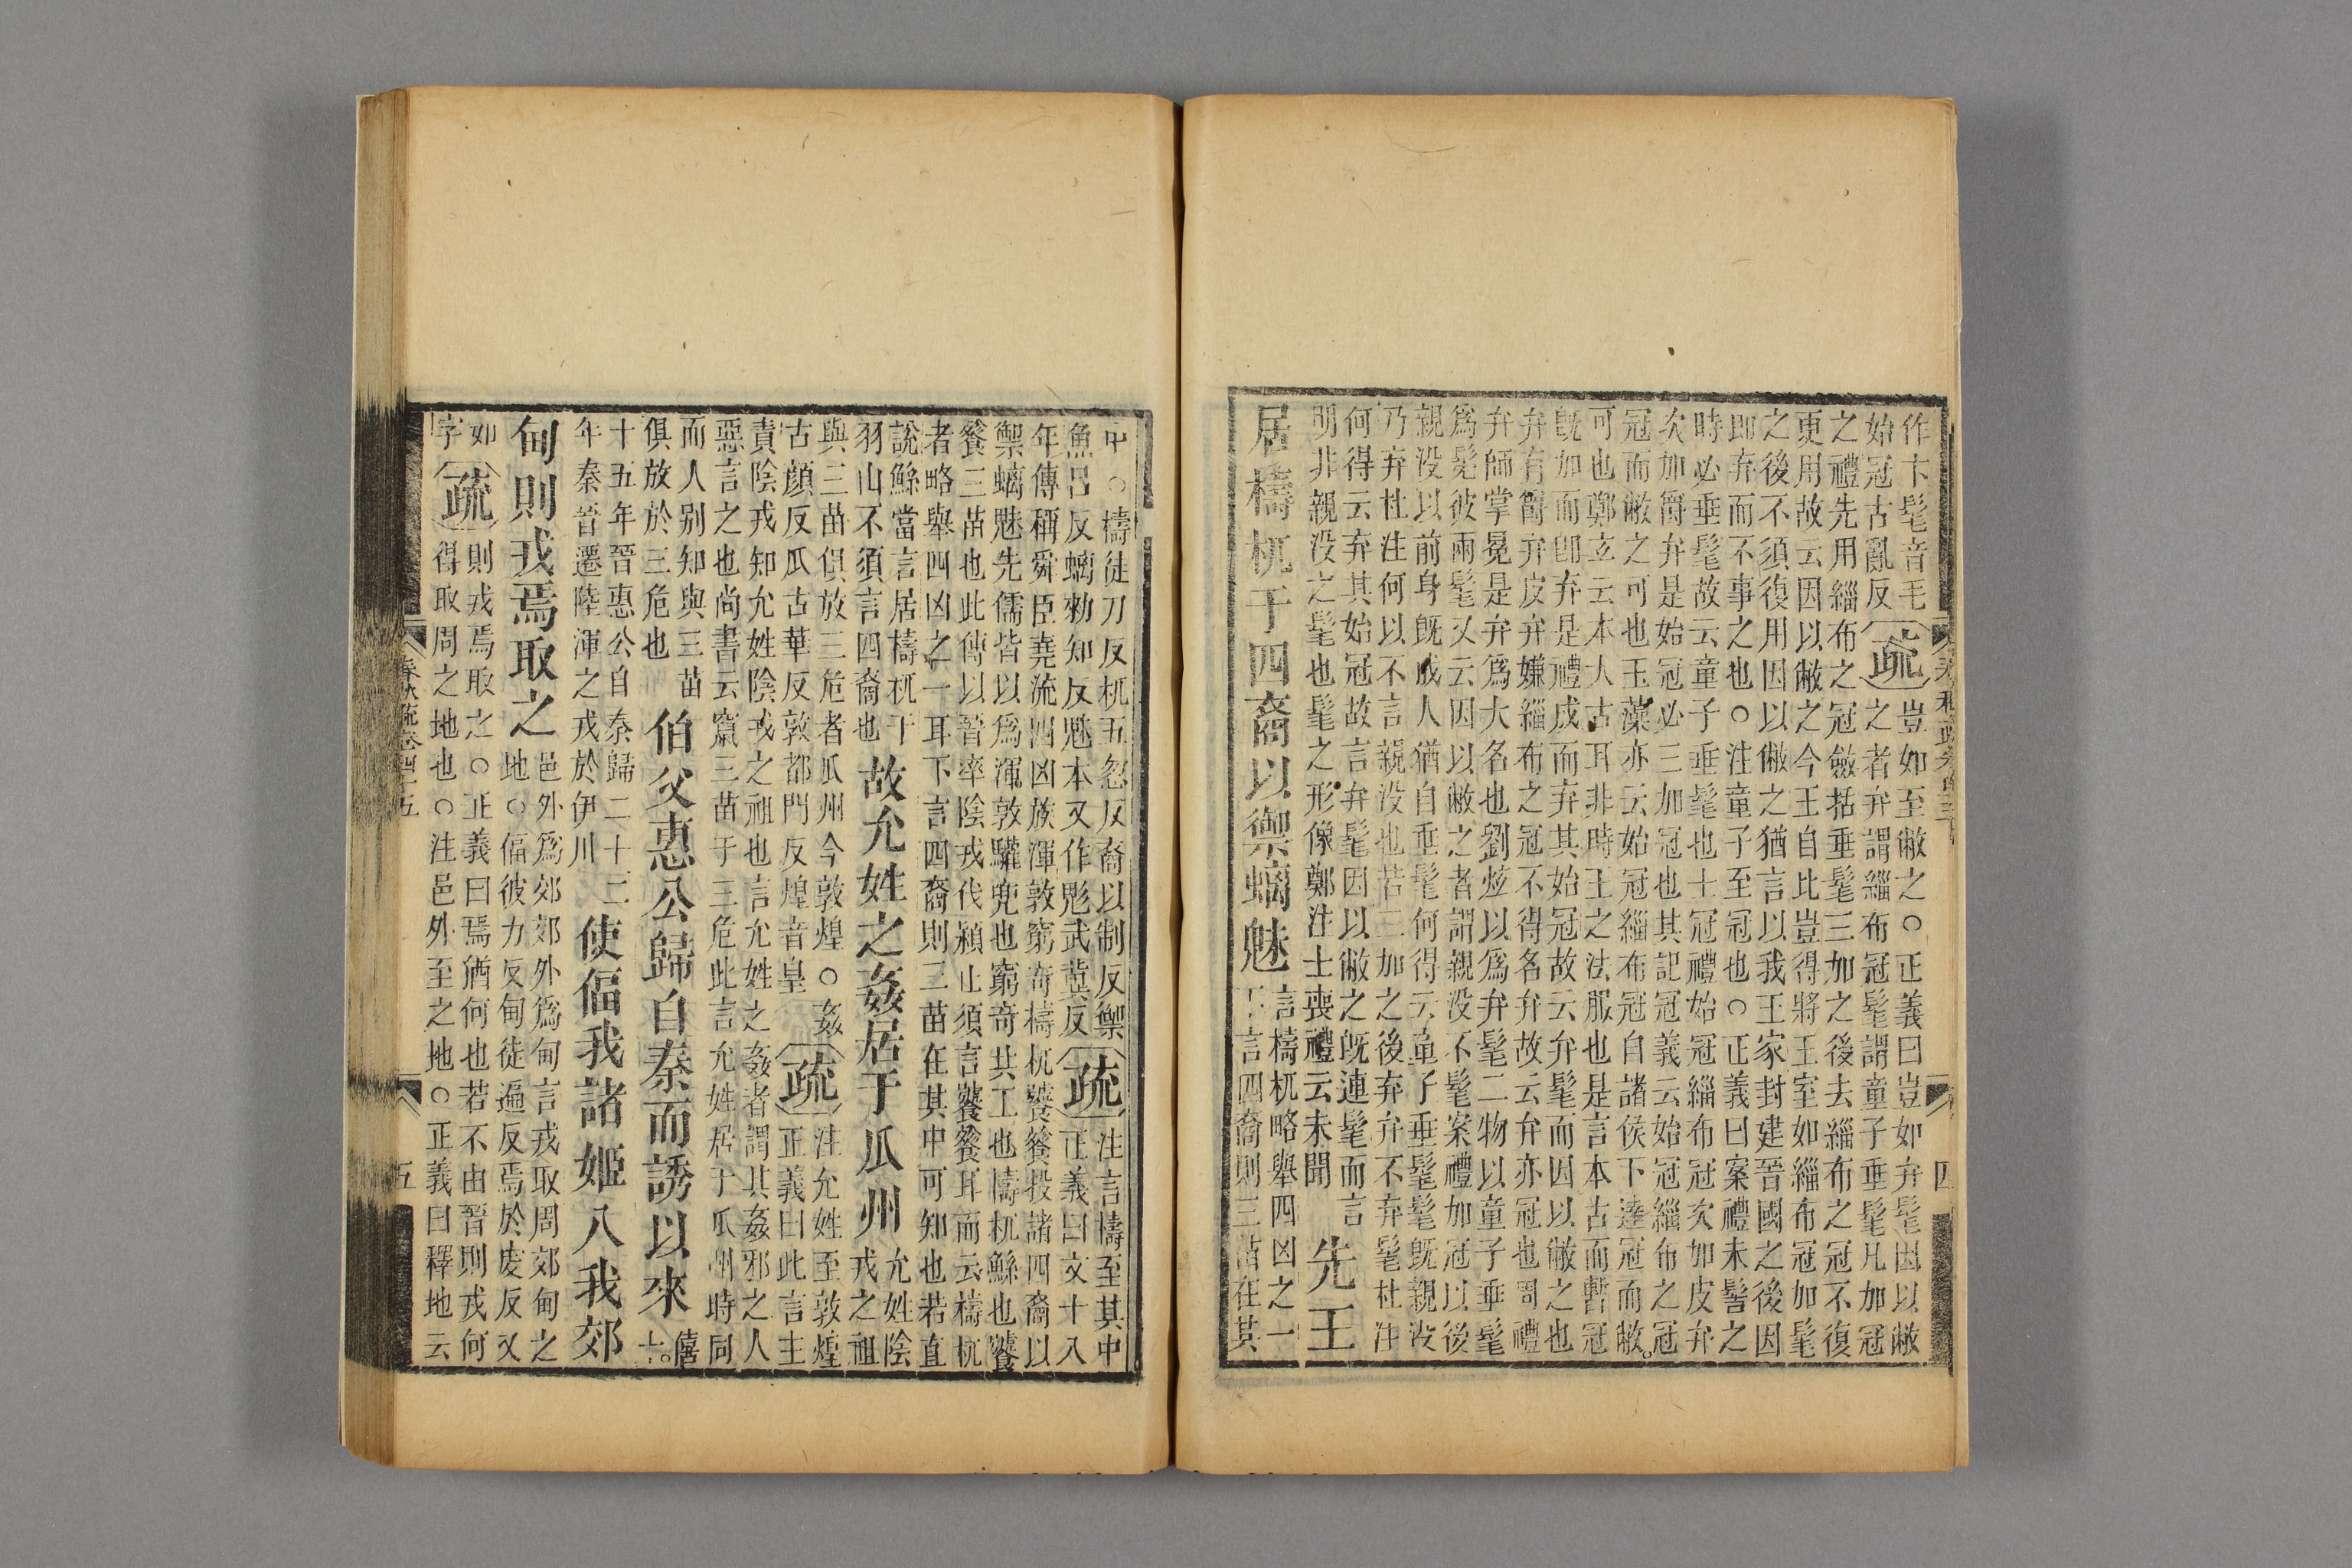 作卞髦音毛
始冠古亂反【疏】豈如至敝之○正義曰豈如弁髦因以敝
之禮先用緇布之冠斂括垂髦三加之後去緇布之冠不復
之者弁謂緇布冠髦謂童子垂髦凡加冠
更用故云因以敝之今王自比豈得將王室如緇布冠加髦
之後不須復用因以敝之猶言以我王家封建晉國之後因
即弃而不事之也○注童子至冠也○正義曰案禮未髻之
時必垂髦故云童子垂髦也士冠禮始冠緇布冠次加皮弁
次加爵弁是始冠必三加冠也其記冠義云始冠緇布之冠
冠而敝之可也玉藻亦云始冠緇布冠自諸侯下達冠而敝
可也鄭立云本人古耳非時王之法服也是言本古而暫冠
既加而即弃是禮成而弃其始冠故云弁髦而因以敝之也
弁有爵弁皮弁嫌緇布之冠不得名弁故云弁亦冠也周禮
弁師掌冕是弁爲大名也劉炫以爲弁髦二物以童子垂髦
爲髧彼兩髦又云因以敝之者謂親没不髦案禮加冠以後
親没以前身既成人猶自垂髦何得云童子垂髦髦既親没
乃弃杜注何以不言親没也若三加之後弃弁不弃髦杜注
何得云弃其始冠故言弁髦因以敝之既連髦而言
明非親没之髦也髦之形像鄭注士喪禮云未聞 先王
居檮杌于四裔以禦螭魅 言檮杌略舉四凶之一
下言四裔則三苗在其
中○檮徒刀反杌五忽反裔以制反禦
魚呂反螭勑知反魅本又作鬽武冀反【疏】注言檮至其中
正義曰文十八
年傳稱舜臣堯流四凶族渾敦窮奇檮杌饕餮投諸四裔以
禦螭魅先儒皆以爲渾敦驩兜也窮奇共工也檮杌鯀也饕
餮三苗也此傳以晉率陰戎伐潁止須言饕餮耳而云檮杌
者略舉四凶之一耳下言四裔則三苗在其中可知也若直
說鯀當言居檮杌于
羽山不須言四裔也 故允姓之姦居于瓜州 允姓陰
戎之祖
與三苗俱放三危者瓜州今敦煌○姦
古顔反瓜古華反敦都門反煌音皇【疏】注允姓至敦煌
正義曰此言主
責陰戎知允姓陰戎之祖也言允姓之姦者謂其姦邪之人
惡言之也尚書云竄三苗于三危此言允姓居于瓜州時同
而人别知與三苗
俱放於三危也 伯父惠公歸自秦而誘以來 僖
十五年晉惠公自秦歸二十二
年秦晉遷陸渾之戎於伊川 使偪我諸姬入我郊
甸則戎焉取之 邑外爲郊郊外爲甸言戎取周郊甸之
地○偪彼力反甸徒遍反焉於虔反又
如
字【疏】則戎焉取之○正義曰焉猶何也若不由晉則戎何
得取周之地也○注邑外至之地○正義曰釋地云
春秋疏卷四十五
五
四